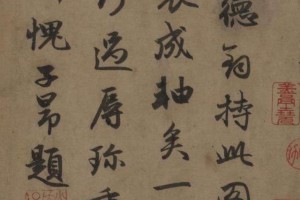 德钧持此図
裝成軸矣一
過辱珍
愧子昂題